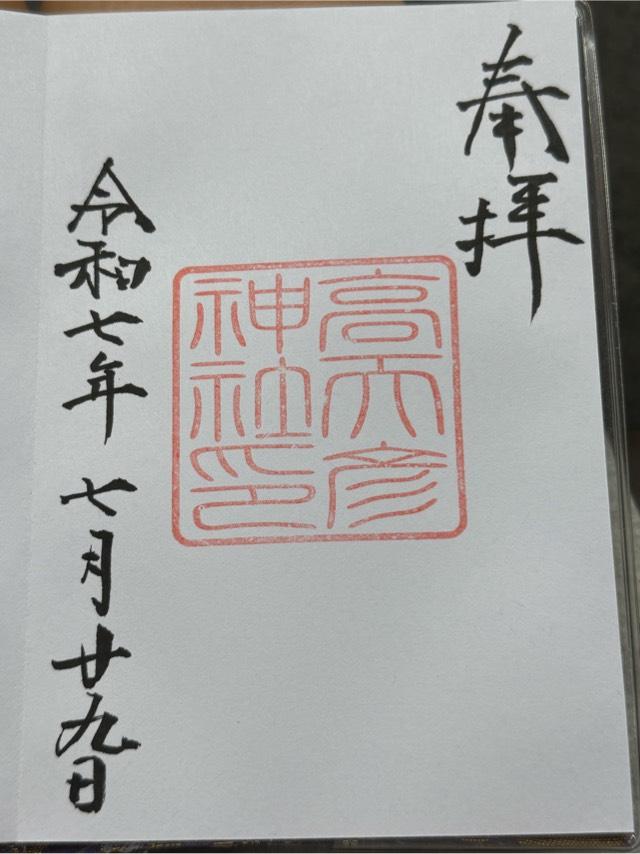 奉拝
高天彦
神社印
令和七年七月廿九日